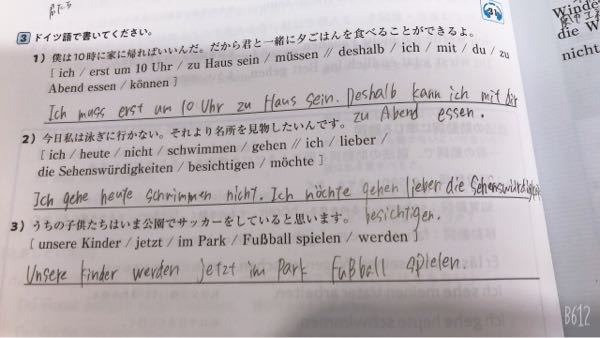 3 ドイツ語で書いてください。
Winde
die W
nicht
1) 僕は10時に家に帰ればいいんだ。だから君と一緒に夕ごはんを食べることができるよ。
[ ich / erst um 10 Uhr / zu Haus sein / müssen // deshalb / ich / mit / du / zu
Abend essen / können ]
Ich muss erst um 10 Uhr zu Haus sein. Deshalb kann ich mit dir
zu Abend essen.
2) 今日私は泳ぎに行かない。それより名所を見物したいんです。
[ ich / heute / nicht / schwimmen / gehen // ich / lieber /
die Sehenswürdigkeiten / besichtigen / möchte ]
Ich gehe heute schwimmen nicht. Ich möchte gehen lieber die Sehenswürdigkeit
besichtigen.
3) うちの子供たちはいま公園でサッカーをしていると思います。
[ unsere Kinder / jetzt / im Park / Fußball spielen / werden ]
Unsere Kinder werden jetzt im Park Fußball spielen.
B612